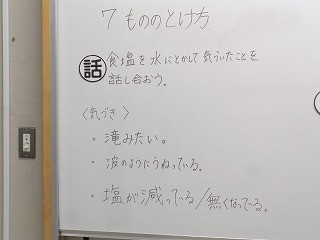 7 もののとけ方
話 食塩を水にとかして気づいたことを
話し合おう。
〈気づき〉
・滝みたい。
・波のようにうねっている。
・塩が減っている/無くなっている。